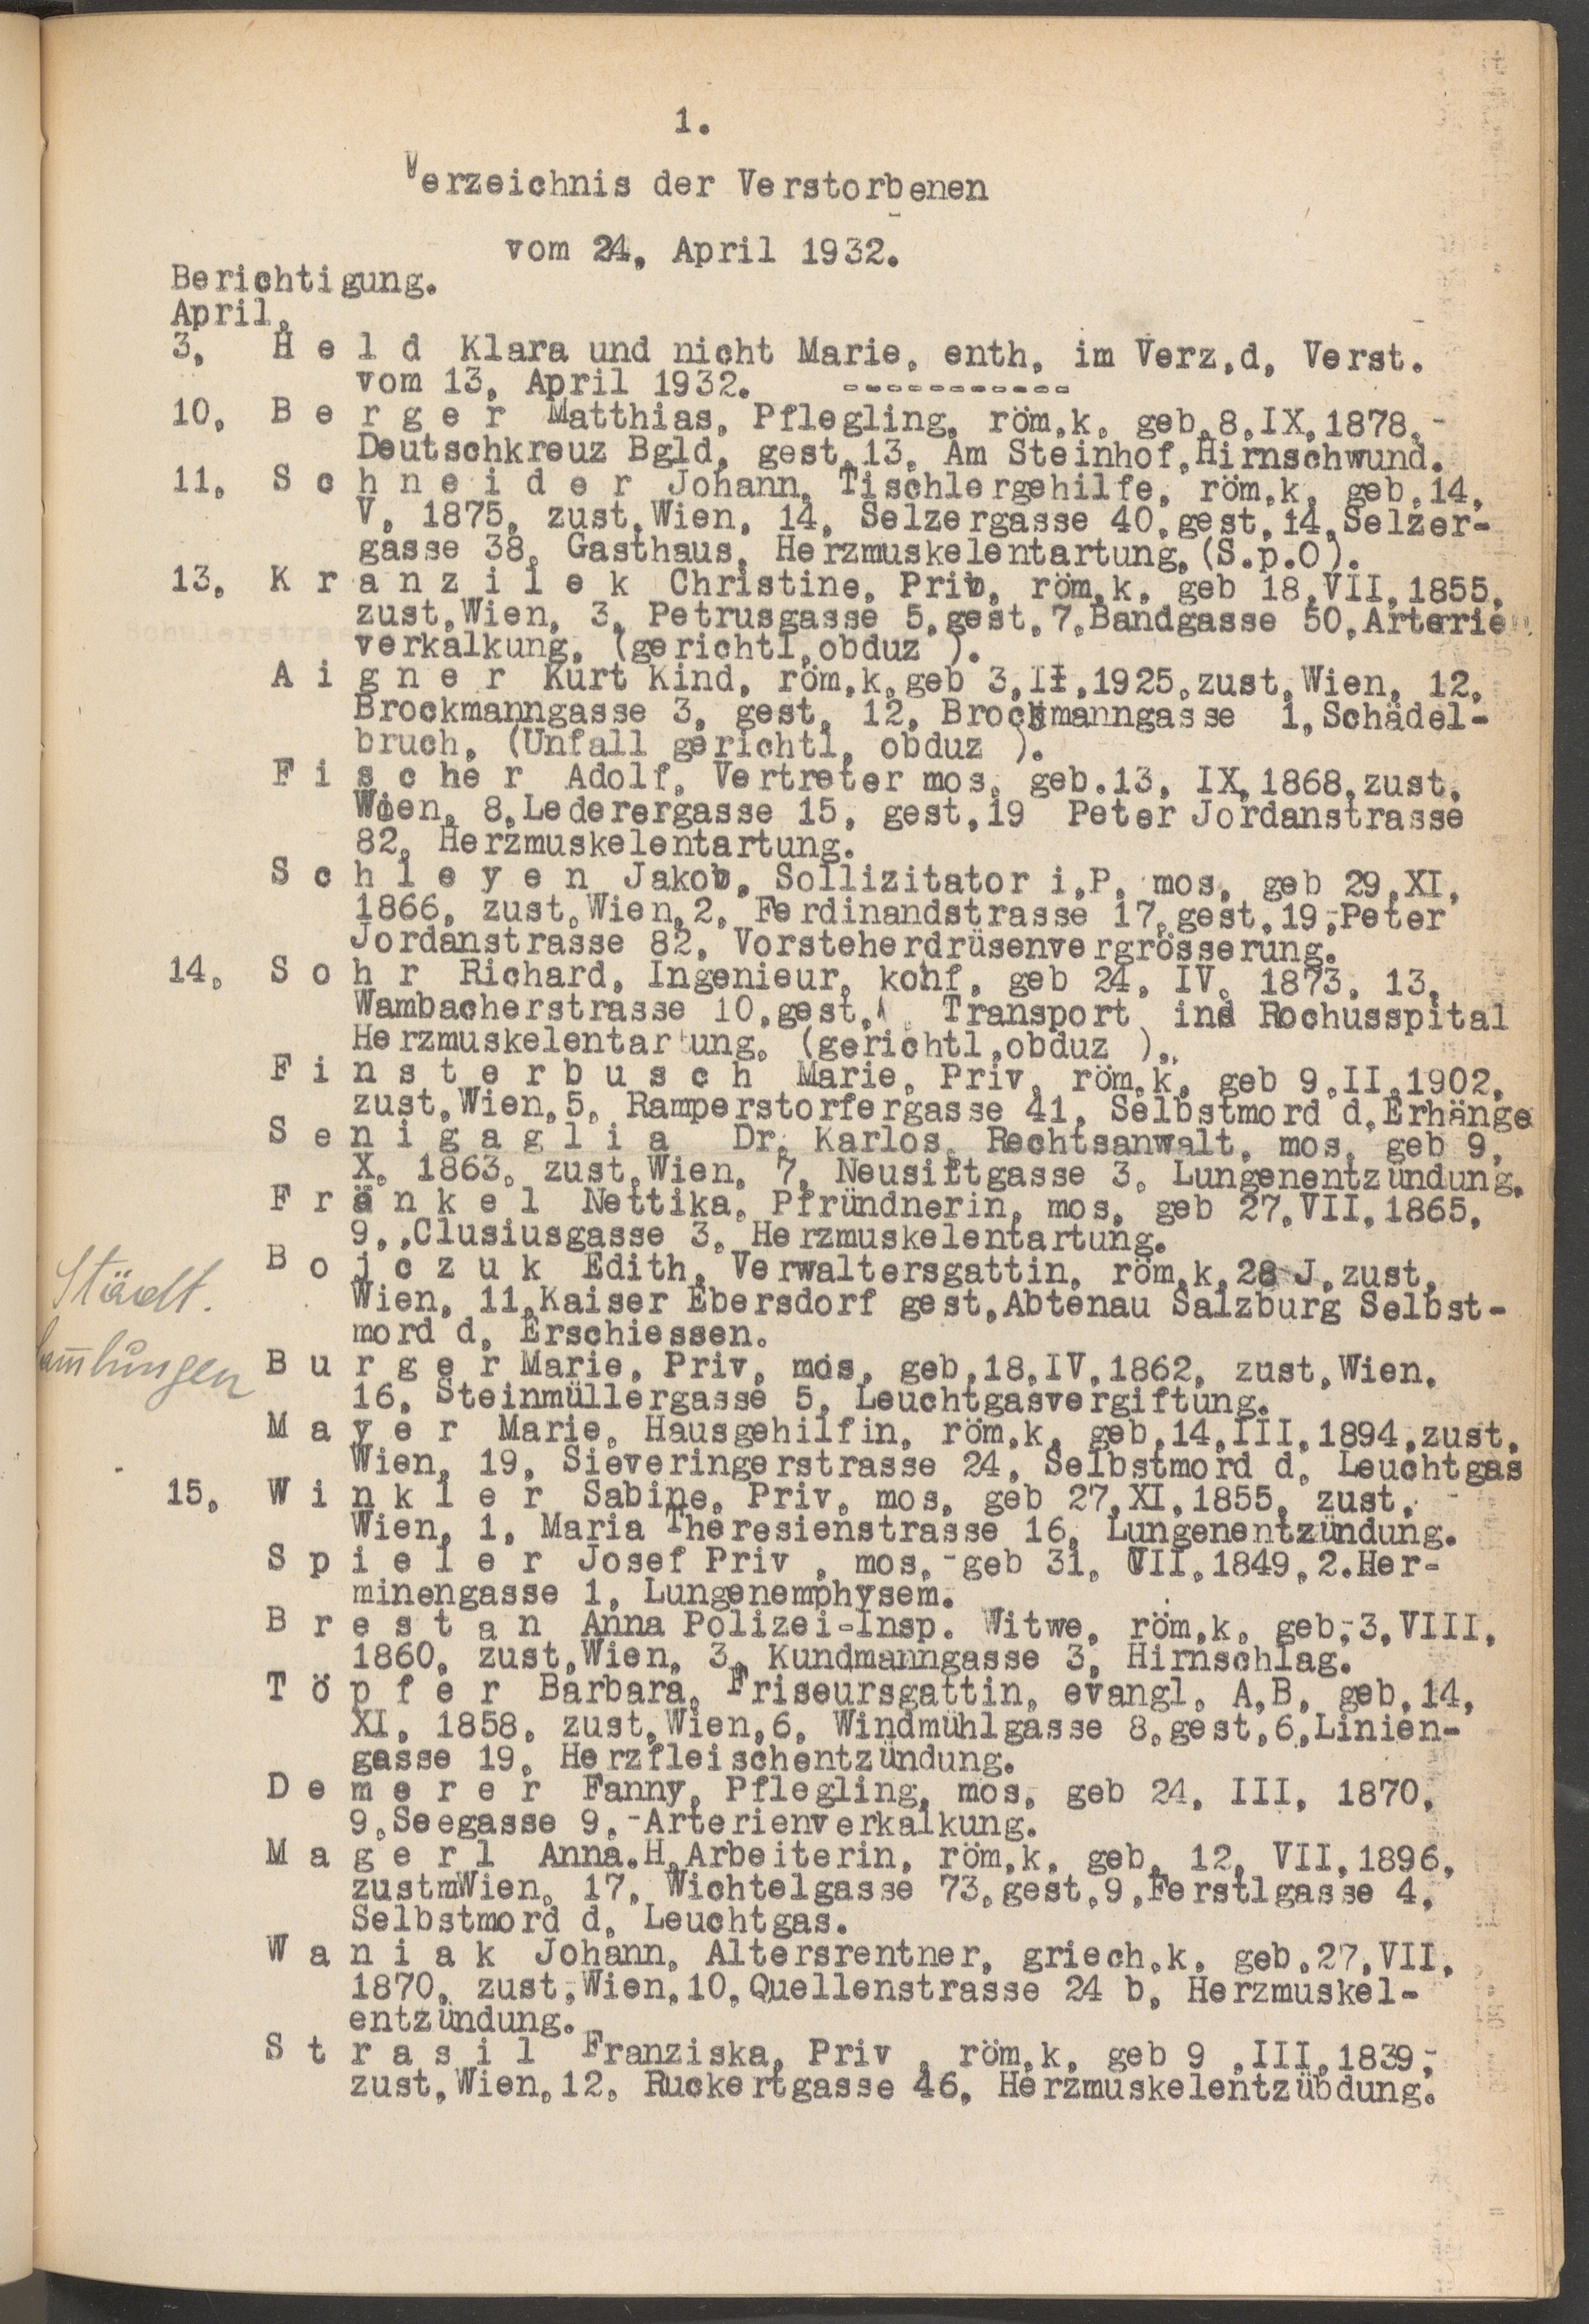 1.
Verzeichnis der Verstorbenen
vom 24, April 1932.
Berichtigung.
April,
3, H e l d Klara und nicht Marie, enth, im Verz,d, Verst.
vom 13, April 1932. -----------
10, B e r g e r Matthias, Pflegling, röm,k, geb,8,IX,1878,-
Deutschkreuz Bgld, gest,13, Am Steinhof,Hirnschwund.
11, S c h n e i d e r Johann, Tischlergehilfe, röm,k, geb,14,
V, 1875, zust,Wien, 14, Selzergasse 40,gest,14,Selzer-
gasse 38, Gasthaus, Herzmuskelentartung,(S.p.O).
13, K r a n z i l e k Christine, Priv, röm,k, geb 18,VII,1855,
zust,Wien, 3, Petrusgasse 5,gest,7,Bandgasse 50,Arterien
verkalkung, (gerichtl,obduz ).
A i g n e r Kurt Kind, röm,k,geb 3,II,1925,zust,Wien, 12,
Brockmanngasse 3, gest, 12, Brockmanngasse 1,Schädel-
bruch, (Unfall gerichtl, obduz ).
F i s c h e r Adolf, Vertreter mos, geb.13, IX,1868,zust,
Wien, 8,Lederergasse 15, gest,19 Peter Jordanstrasse
82, Herzmuskelentartung.
S c h l e y e n Jakob, Sollizitator i,P, mos, geb 29,XI,
1866, zust,Wien,2, Ferdinandstrasse 17,gest,19,-Peter
Jordanstrasse 82, Vorsteherdrüsenvergrösserung.
14, S o h r Richard, Ingenieur, kohf, geb 24, IV, 1873, 13,
Wambacherstrasse 10,gest, Transport ins Rochusspital
Herzmuskelentartung, (gerichtl,obduz ),,
F i n s t e r b u s c h Marie, Priv, röm,k, geb 9,II,1902,
zust,Wien,5, Ramperstorfergasse 41, Selbstmord d,Erhänge
S e n i g a g l i a Dr, Karlos, Rechtsanwalt, mos, geb 9,
X, 1863, zust,Wien, 7, Neusiftgasse 3, Lungenentzündung,
F r ä n k e l Nettika, Pfründnerin, mos, geb 27,VII,1865,
9,,Clusiusgasse 3, Herzmuskelentartung.
B o j c z u k Edith, Verwaltersgattin, röm,k,28 J,zust,
Städt.
Wien, 11,Kaiser Ebersdorf gest,Abtenau Salzburg Selbst-
mord d, Erschiessen.
B u r g e r Marie, Priv, mos, geb,18,IV,1862, zust,Wien,
16, Steinmüllergasse 5, Leuchtgasvergiftung.
M a y e r Marie, Hausgehilfin, röm,k, geb,14,III,1894,zust,
Wien, 19, Sieveringerstrasse 24, Selbstmord d, Leuchtgas
15, W i n k l e r Sabine, Priv, mos, geb 27,XI,1855, zust,
Wien, 1, Maria Theresienstrasse 16, Lungenentzündung.
S p i e l e r Josef Priv , mos,-geb 31, VII,1849,2.Her-
minengasse 1, Lungenemphysem.
B r e s t a n Anna Polizei-Insp. Witwe, röm,k, geb,-3,VIII,
1860, zust,Wien, 3, Kundmanngasse 3, Hirnschlag.
T ö p f e r Barbara, Friseursgattin, evangl, A,B, geb,14,
XI, 1858, zust,Wien,6, Windmühlgasse 8,gest,6,Linien-
gasse 19, Herzfleischentzündung.
D e m e r e r Fanny, Pflegling, mos, geb 24, III, 1870,
9,Seegasse 9,-Arterienverkalkung.
M a g e r l Anna.H,Arbeiterin, röm,k, geb, 12, VII,1896,
zustmWien, 17, Wichtelgasse 73,gest,9,Ferstlgasse 4,
Selbstmord d, Leuchtgas.
W a n i a k Johann, Altersrentner, griech,k, geb,27,VII,
1870, zust,Wien,10,Quellenstrasse 24 b, Herzmuskel-
entzündung.
S t r a s i l Franziska, Priv , röm,k, geb 9 ,III,1839,-
zust,Wien,12, Ruckertgasse 46, Herzmuskelentzübdung.